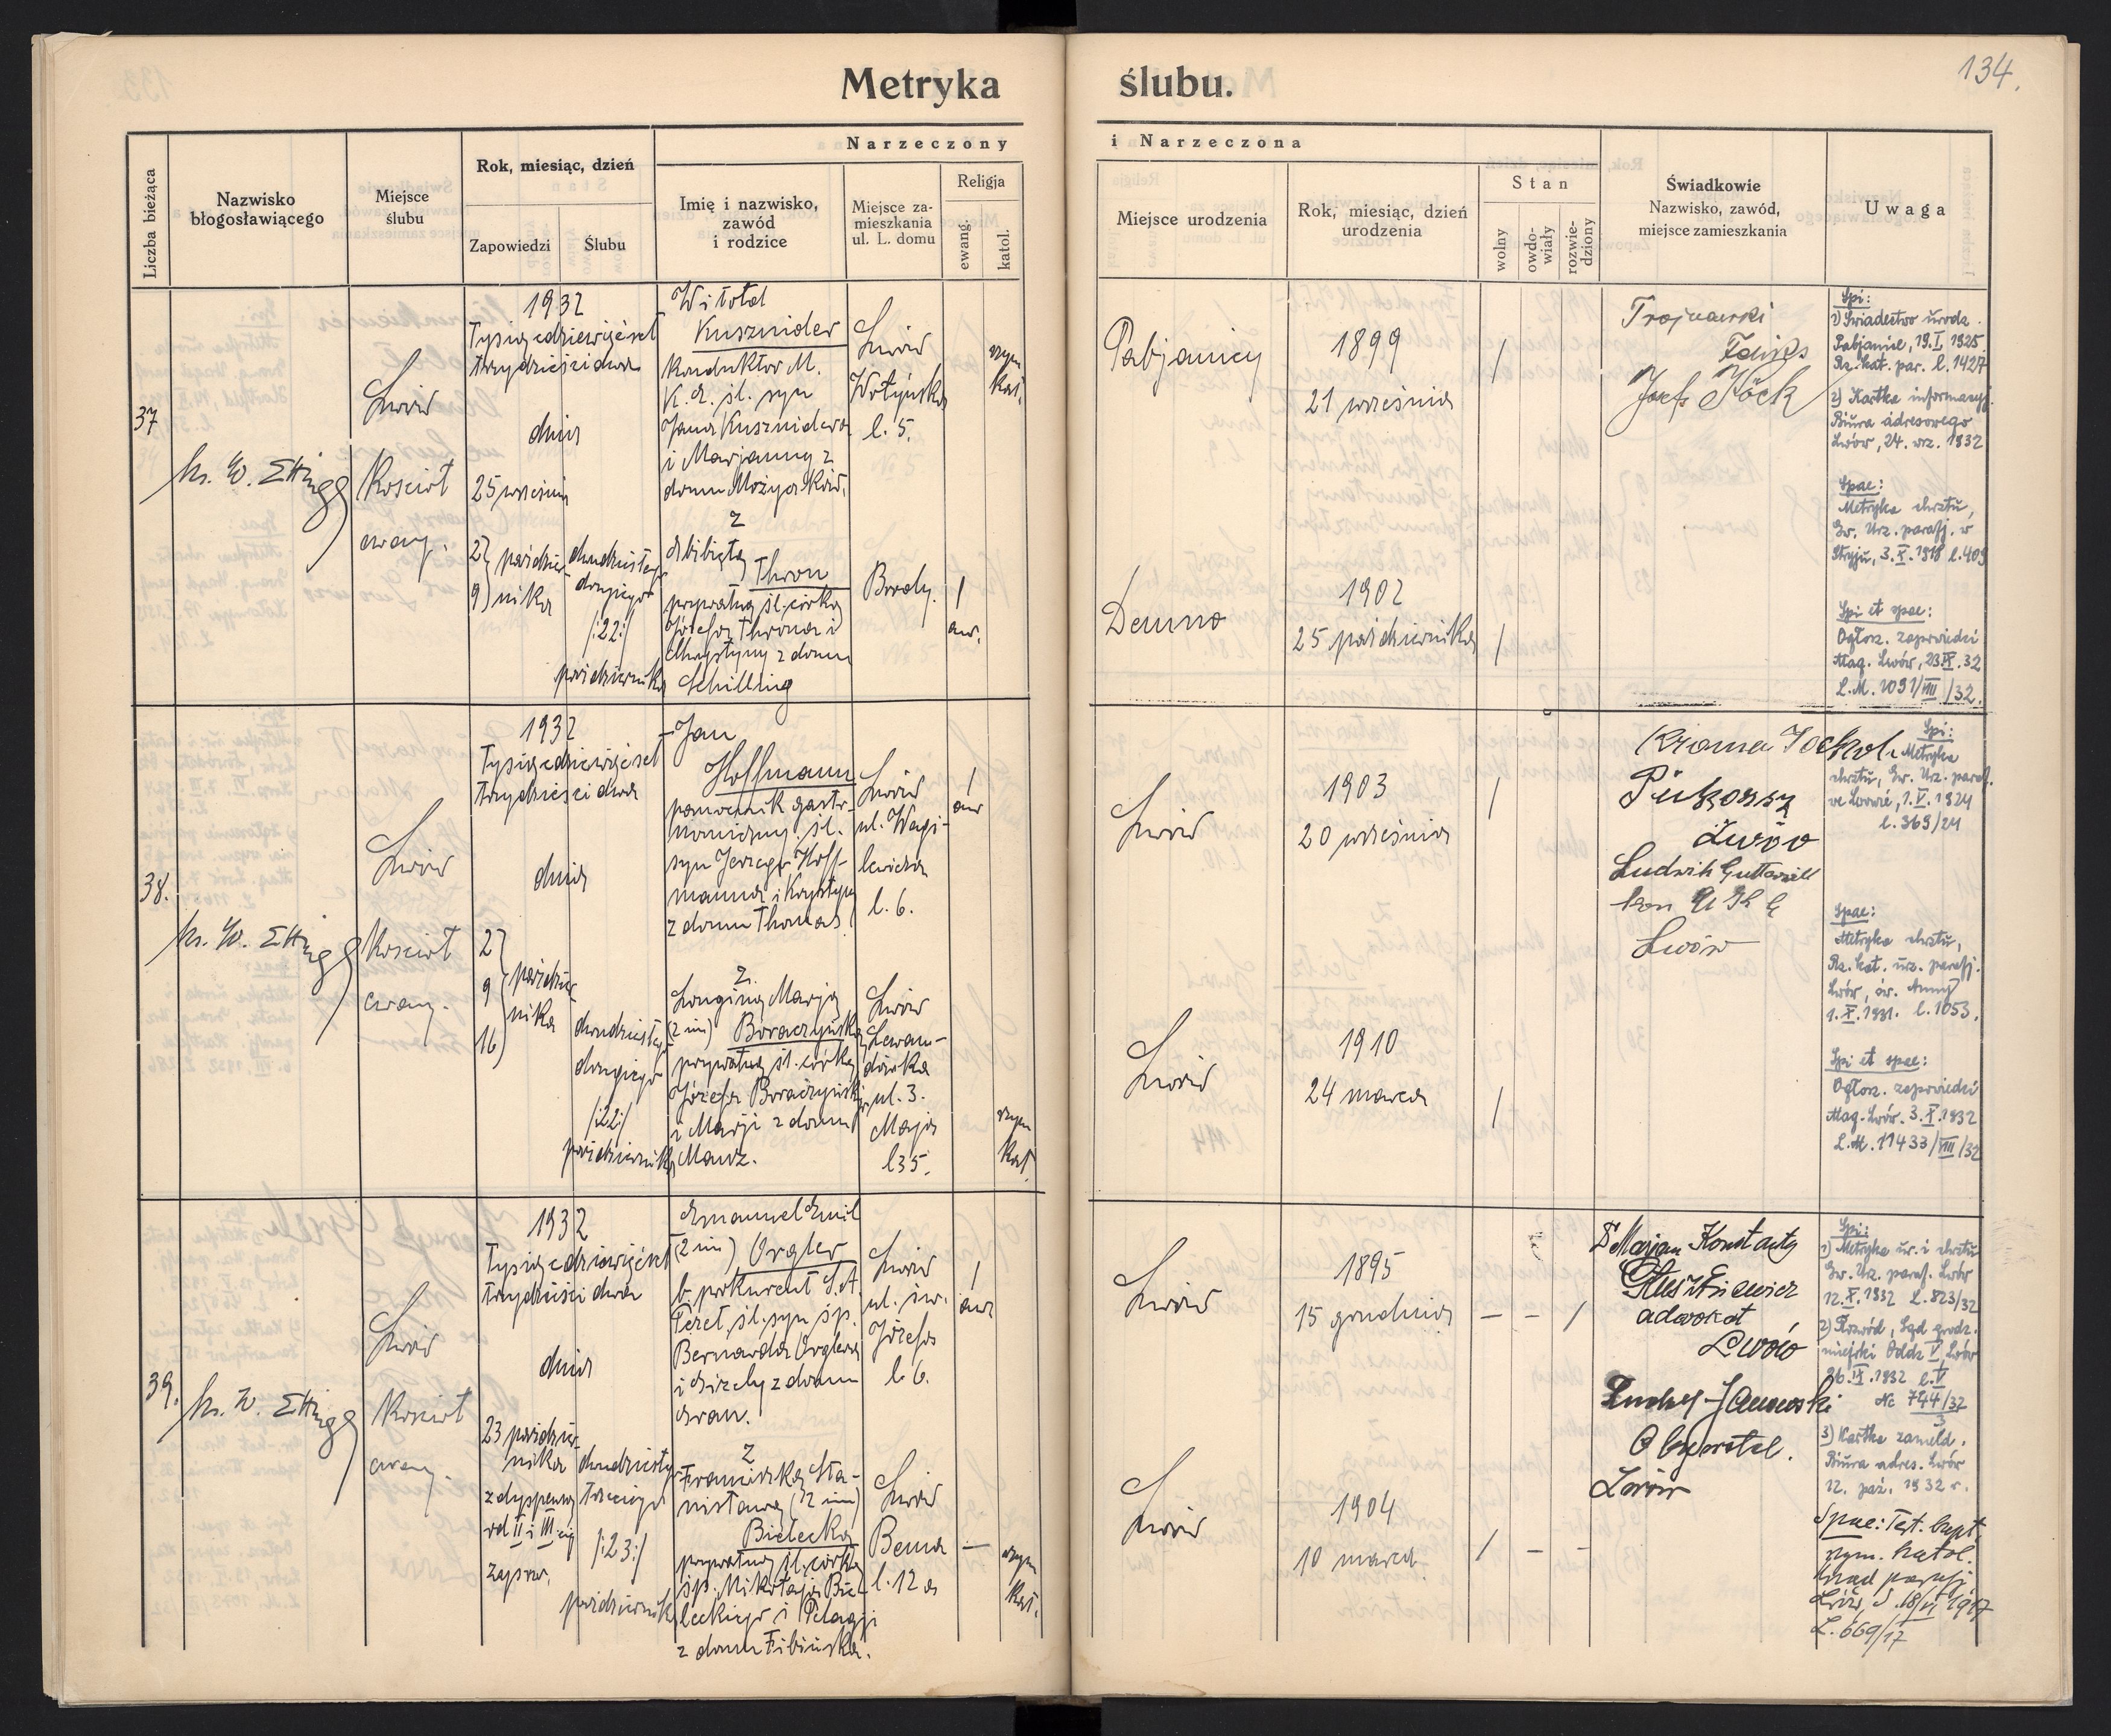 134.
Metryka ślubu.
Liczba bieżąca
Nazwisko
błogosławiącego
Miejsce
ślubu
Rok, miesiąc, dzień
Zapowiedzi
Ślubu
Narzeczony
i Narzeczona
Imię i nazwisko,
zawód
i rodzice
Miejsce za-
mieszkania
ul. L. domu
Religja
ewang.
katol.
Miejsce urodzenia
Rok, miesiąc, dzień
urodzenia
Stan
wolny
owdo-
wiały
rozwie-
dziony
Świadkowie
Nazwisko, zawód,
miejsce zamieszkania
Uwaga
37
ks. W. Ettinger
Lwów
Kościół
ewang.
1932
Tysiąc dziewięćset
trzydzieści dwa
dnia
25 września
2) paździer-
9) nika
dwudziestego
drugiego
/:22:/
października
Witold
Kusznider
konduktor M.
K. E. śl. syn
Jana Kusznidera
i Marjanny z
domu
z
Elżbietą
Thron
prywatną śl. córką
Józefa Throna i
Chrystyny z domu
Schilling
Lwów
Wołyńska
l. 5.
Brody.
1
aw.
rzym
kat.
Pabjanicy
1899
21 września
/
Demno
1902
25 października
/
Josef Köck
Spi:
1) Świadectwo urodz.
Pabjanice, 19.I.1925
Rz. kat. par. l. 1427
2) Kartka informacyj.
Biura adresowego
Lwów, 24. wrz. 1932
Spae:
Metryka chrztu,
Ew. Urz. parafj. w
Stryju, 3.X.1918 l. 409
Spi et spae:
Ogłosz. zapowiedzi
Mag. Lwów, 23.IX.32
L.M. 1091/VIII/32.
38.
ks. W. Ettinger
Lwów
Kościół
ewang.
1932
Tysiąc dziewięćset
trzydzieści dwa
dnia
2)
9 paździer-
nika
16)
dwudziestego
drugiego
/:22:/
października
Jan
Hoffmann
pomocnik gastr-
nomiczny, śl.
syn Jerzego Hoff-
manna i Krystyny
z domu Thomas
z
Longiną Marją
(2 im) Boraczyńską
prywatną śl. córką
Józefa Boraczyńskiego
i Marji z domu
Manz.
Lwów
ul. Wasi-
lewicza
l. 6.
Lwów
Lewan-
dówka
ul. 3.
Maja
l 35.
1
aw
rzym
kat.
Lwów
1903
20 września
/
Lwów
1910
24 marca
/
Lwów
Ludwik
Lwów
Spi:
Metryka
chrztu, Ew. Urz. paraf.
we Lwowie, 1.V.1924
l. 369/24
Spae:
Metryka chrztu,
Rz. kat. urz. parafj.
Lwów, św. Anny
1.X.1931. l. 1053.
Spi et spae:
Ogłosz. zapowiedzi
Mag. Lwów. 3.X.1932
L.M. 11433/VIII/32
39.
ks. W. Ettinger
Lwów
Kościół
ewang.
1932
Tysiąc dziewięćset
trzydzieści dwa
dnia
23 paździer-
nika
z dyspensą
od II i III-ciej
zapow.
dwudziestego
trzeciego
/:23:/
października
Emanuel Emil
(2 im) Orgler
b. prokurent S.A.
Peżet, śl. syn śp.
Bernarda Orglera
i Gizely z domu
Gran.
z
Franciszką Sta-
nisławą (2 im)
Bielecką
prywatną śl. córką
śp. Mikołaja Bie-
leckiego i Pelagji
z domu Fibińska.
Lwów
ul. św.
Józefa
l. 6.
Lwów
Bema
l. 12 a
1
aw
—
rzym
kat.
Lwów
1895
15 grudnia
— — /
Lwów
1904
10 marca
/ — —
Dr Marjan Konstanty
adwokat
Lwów
Rudolf Janowski
Obywatel.
Lwów
Spi:
1) Metryka ur. i chrztu
Ew. Urz. paraf. Lwów
12.X.1932 L. 823/32
2) Rozwód, Sąd grodz.
miejski Oddz V, Lwów
26.IX.1932 l. V
Nc 744/32
3
3) Kartka zameld.
Biura adres. Lwów
12. paź. 1932 r.
Spae: Test. bapt.
rzym. katol.
Urząd parafj.
Lwów, d. 18/VI 1917
L. 669/17